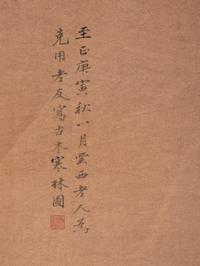 至正庚寅秋八月雲西老人為
克用老友寫古木寒林圖